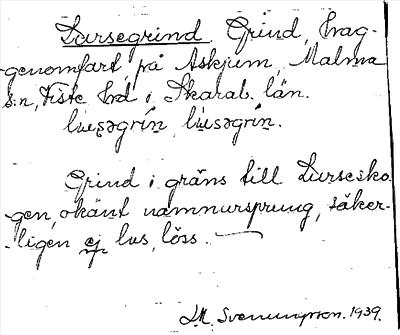 Lursegrind. Grind, vag-
-genomfart, på Askjum, Malma
s:n, Viste hd i Skarab. län.
luʂəgrín, lusəgrín.
Grind i gräns till Lursesko-
-gen, okänt namnursprung, säker-
-ligen ej lus, löss.
Svenungsson. 1939.